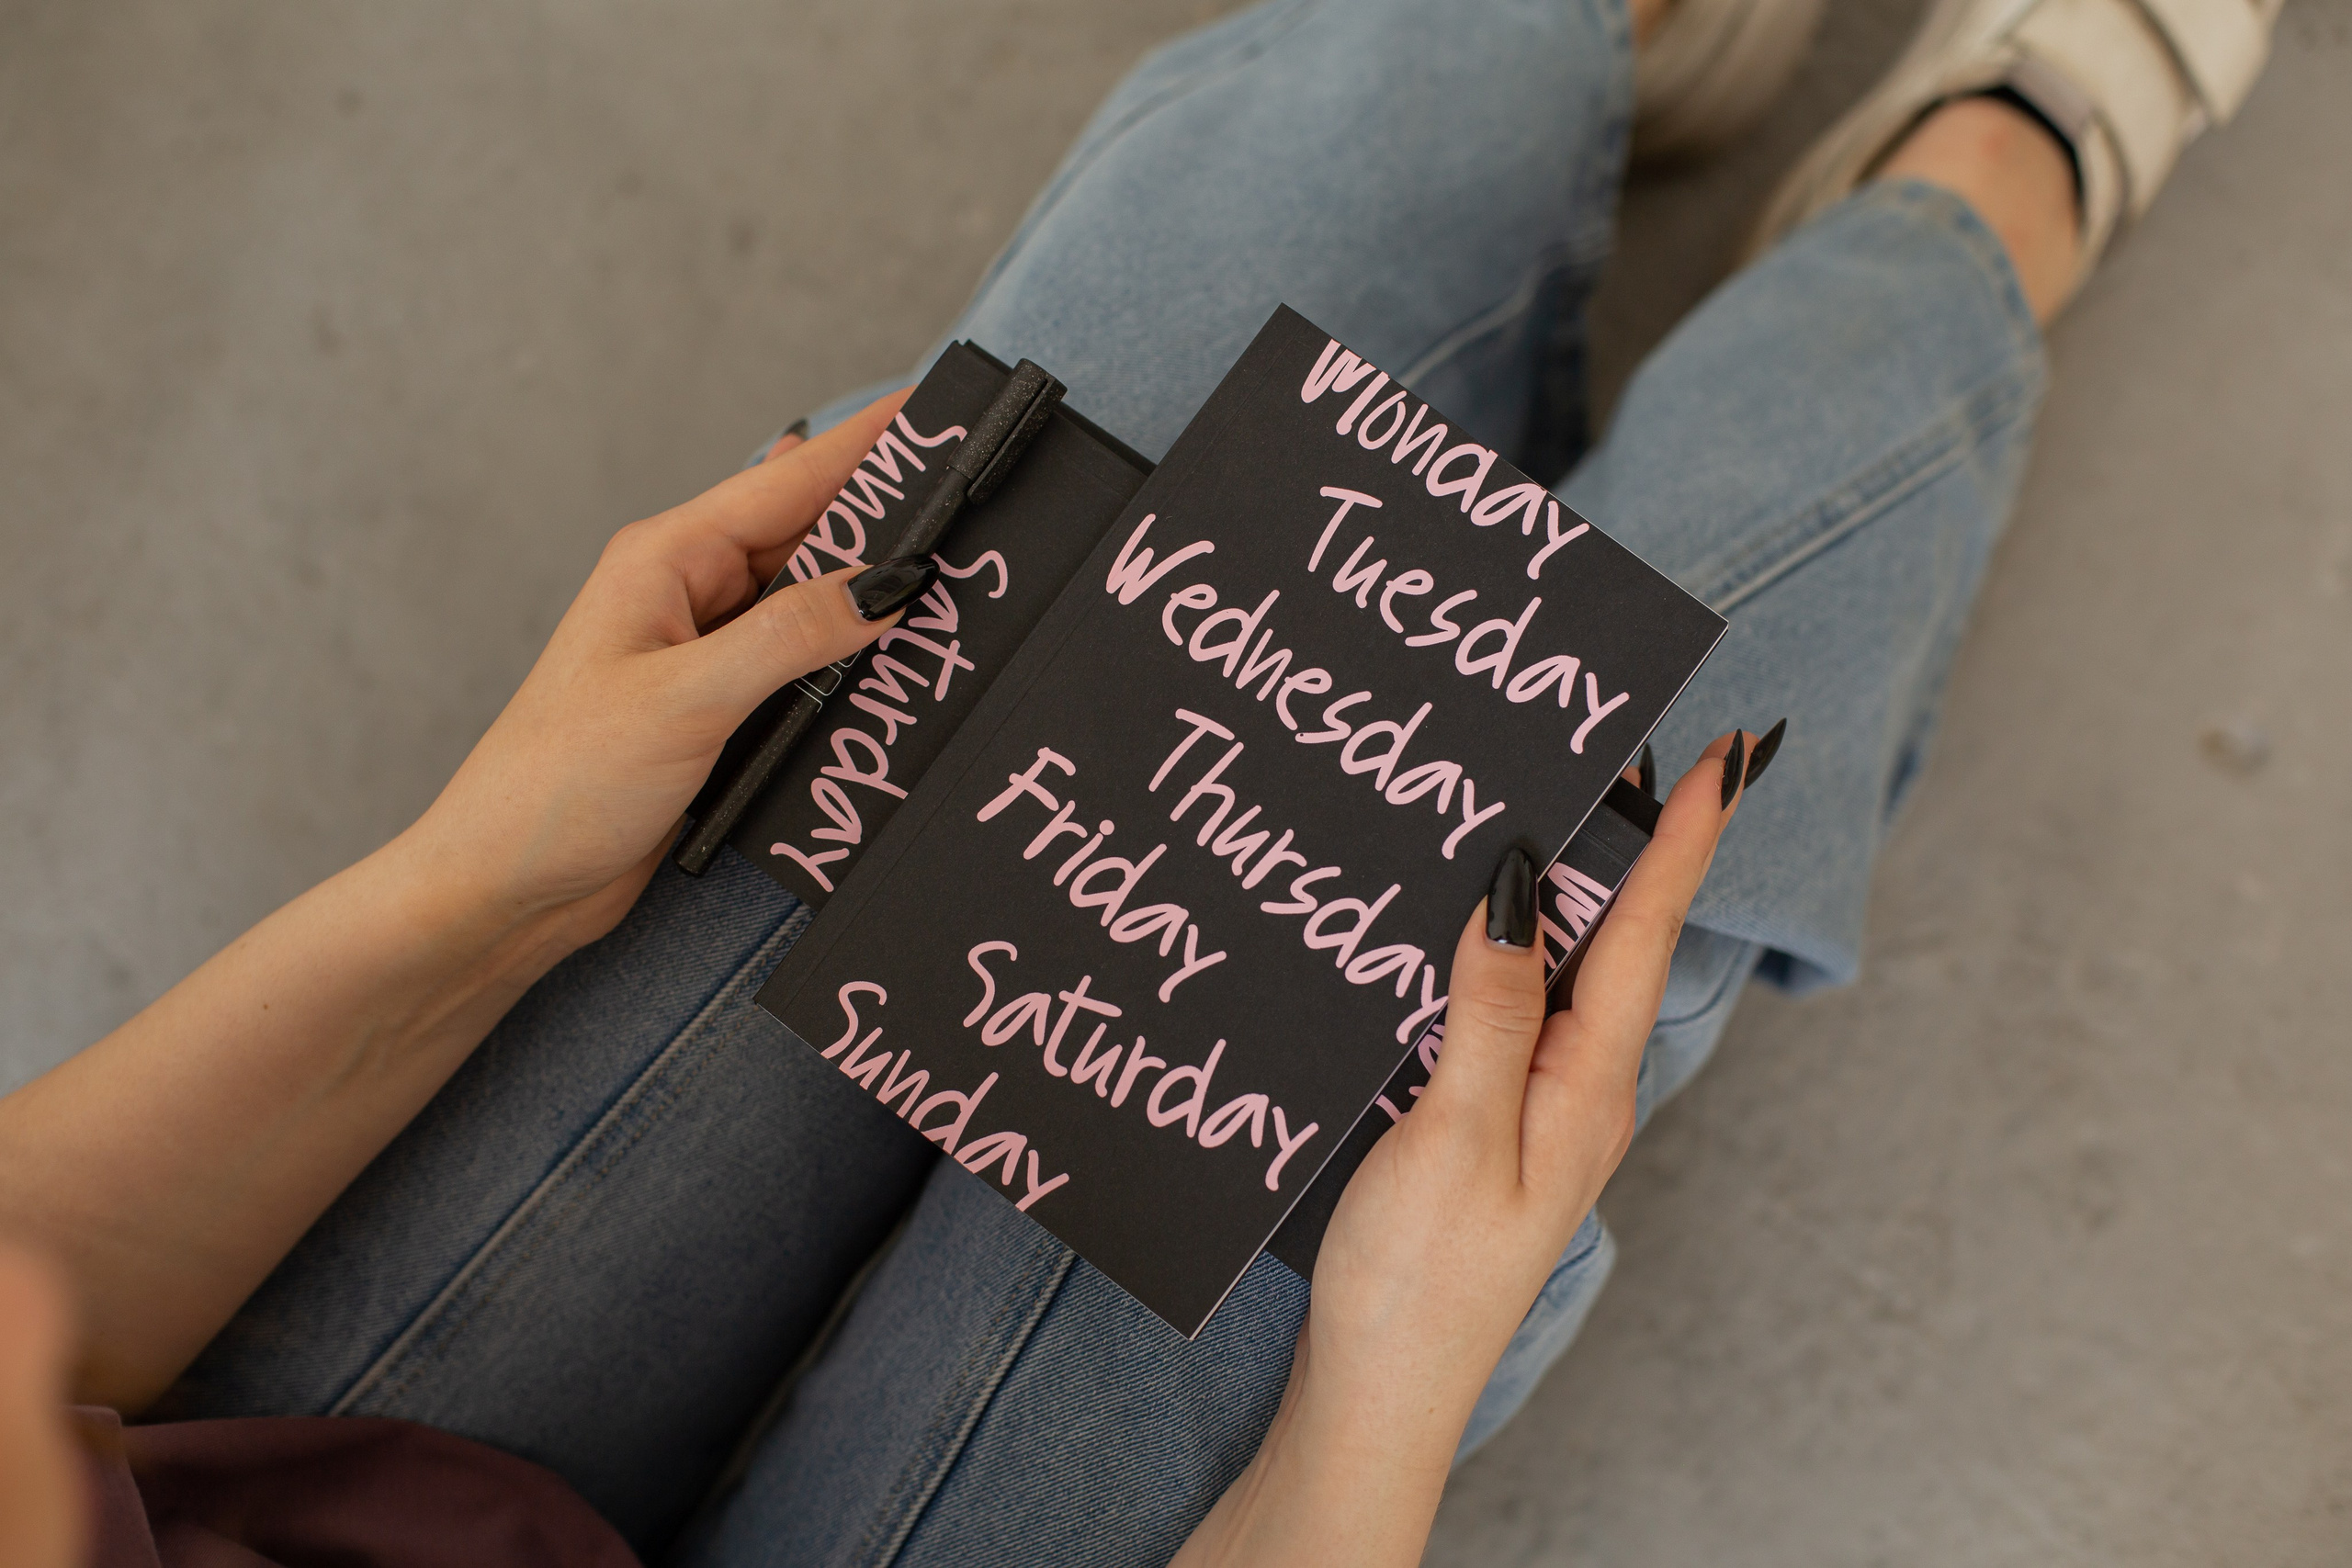 Monday
Tuesday
Wednesday
Thursday
Friday
Saturday
Sunday
Sunday
Saturday